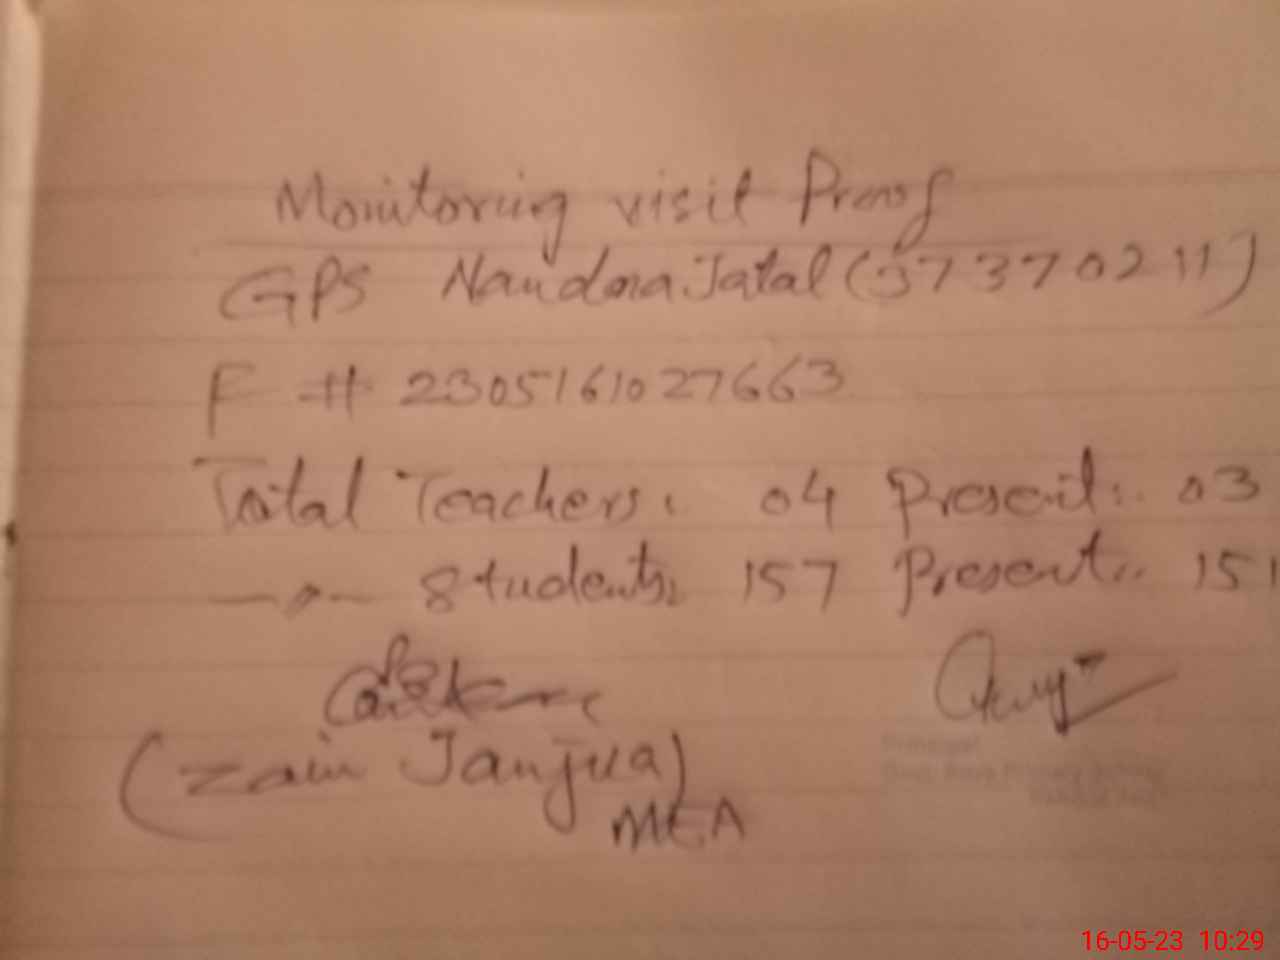 Monitoring visit Proof
GPS Nandna Jatal (37370211)
F # 2305161027663
Total Teachers: 04 Present: 03
—〃— Students: 157 Present: 151
(Zain Janjua)
MEA
Principal
16-05-23 10:29